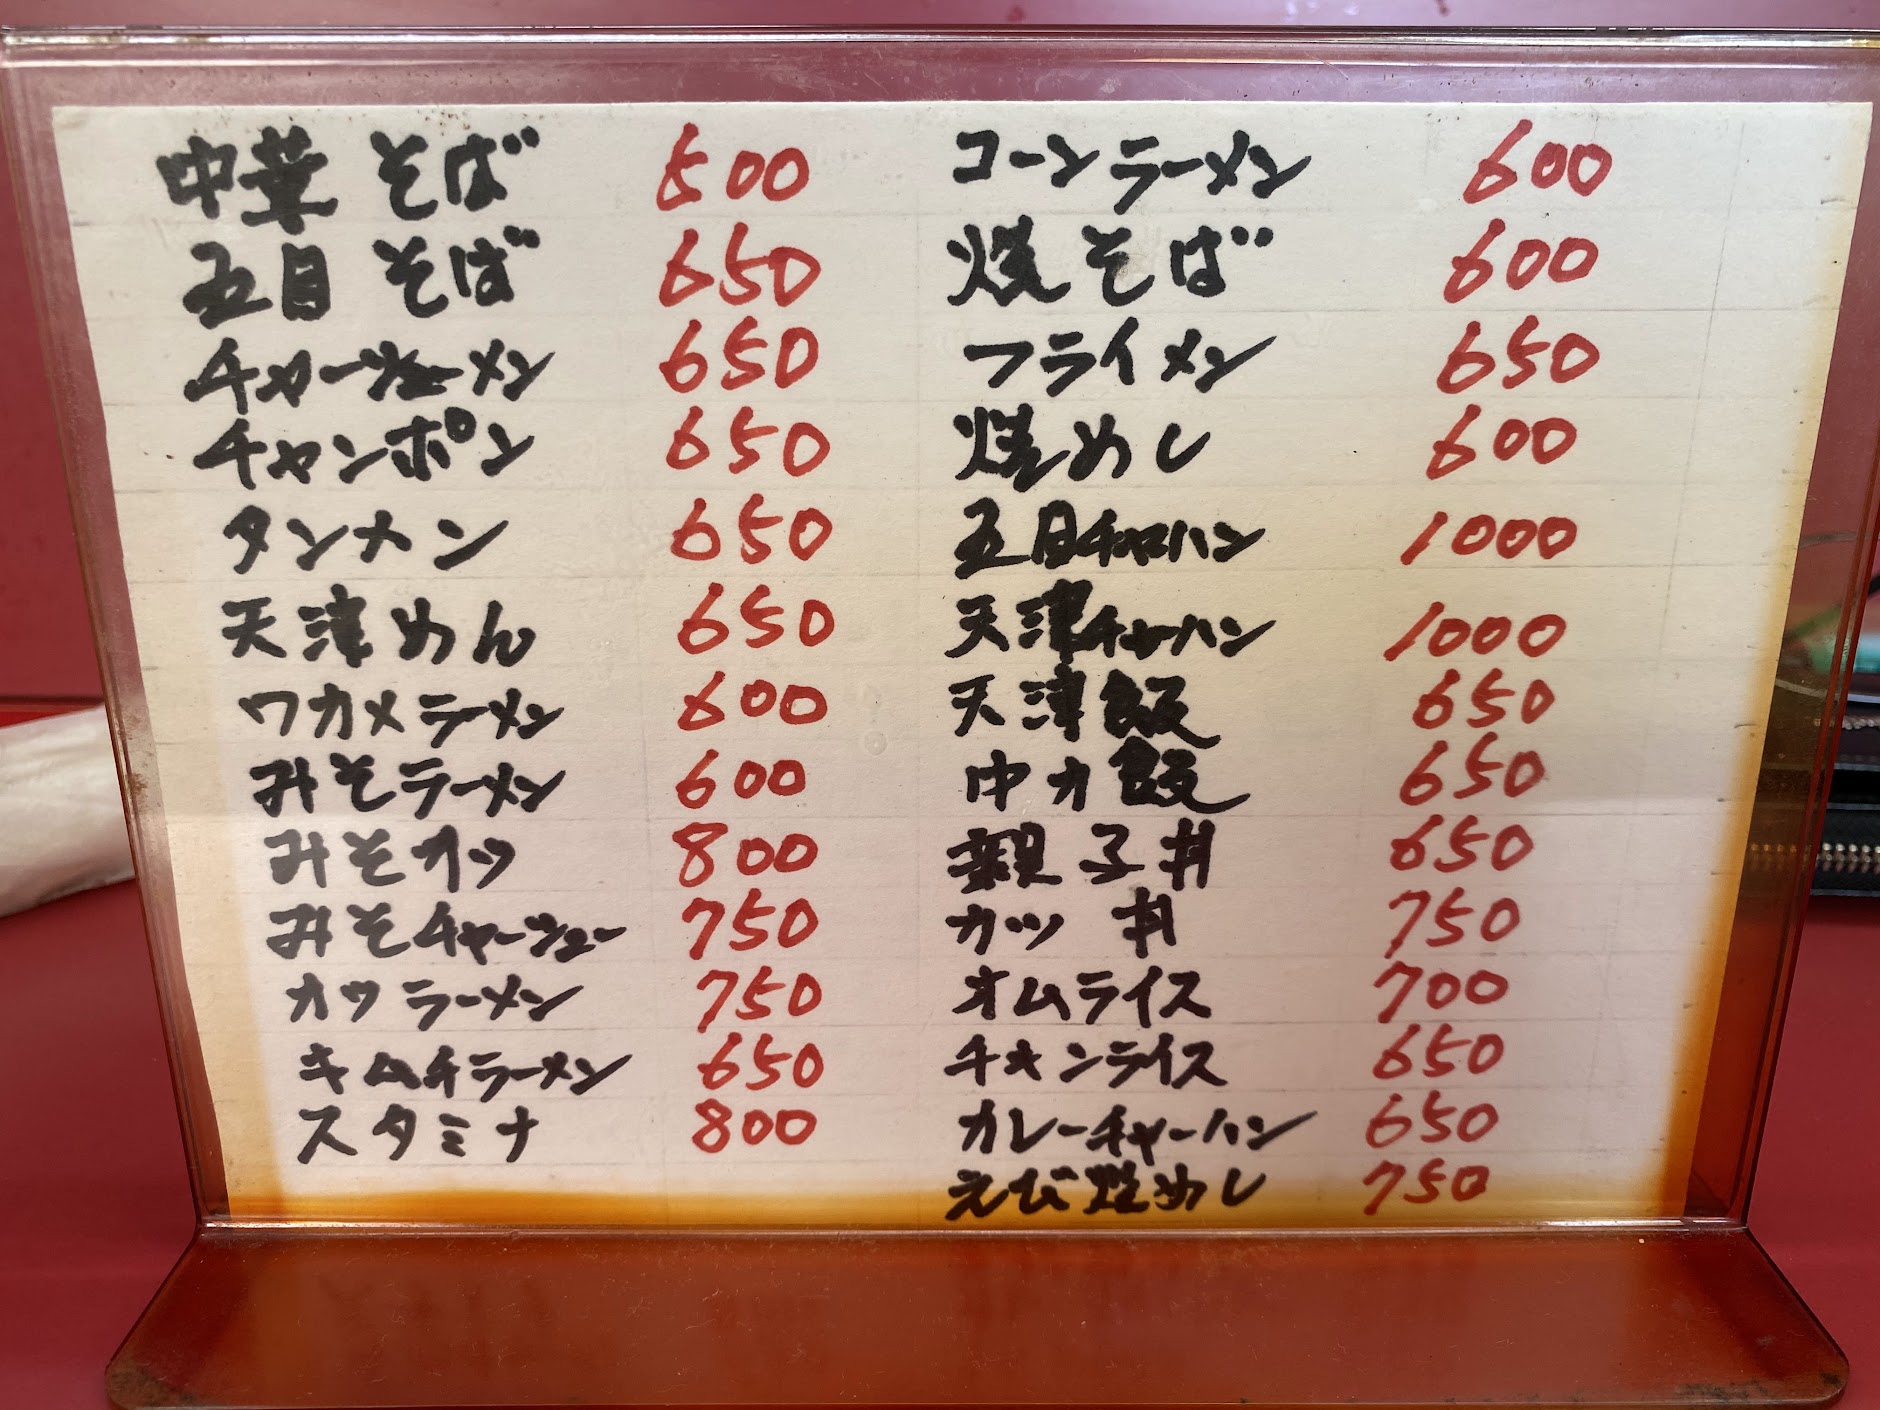 中華そば 500
五目そば 650
チャーシューメン 650
チャンポン 650
タンメン 650
天津めん 650
ワカメラーメン 600
みそラーメン 600
みそカツ 800
みそチャーシュー 750
カツラーメン 750
キムチラーメン 650
スタミナ 800
コーンラーメン 600
焼そば 600
フライメン 650
焼めし 600
五目チャーハン 1000
天津チャーハン 1000
天津飯 650
中カ飯 650
親子丼 650
カツ丼 750
オムライス 700
チキンライス 650
カレーチャーハン 650
えび焼めし 750